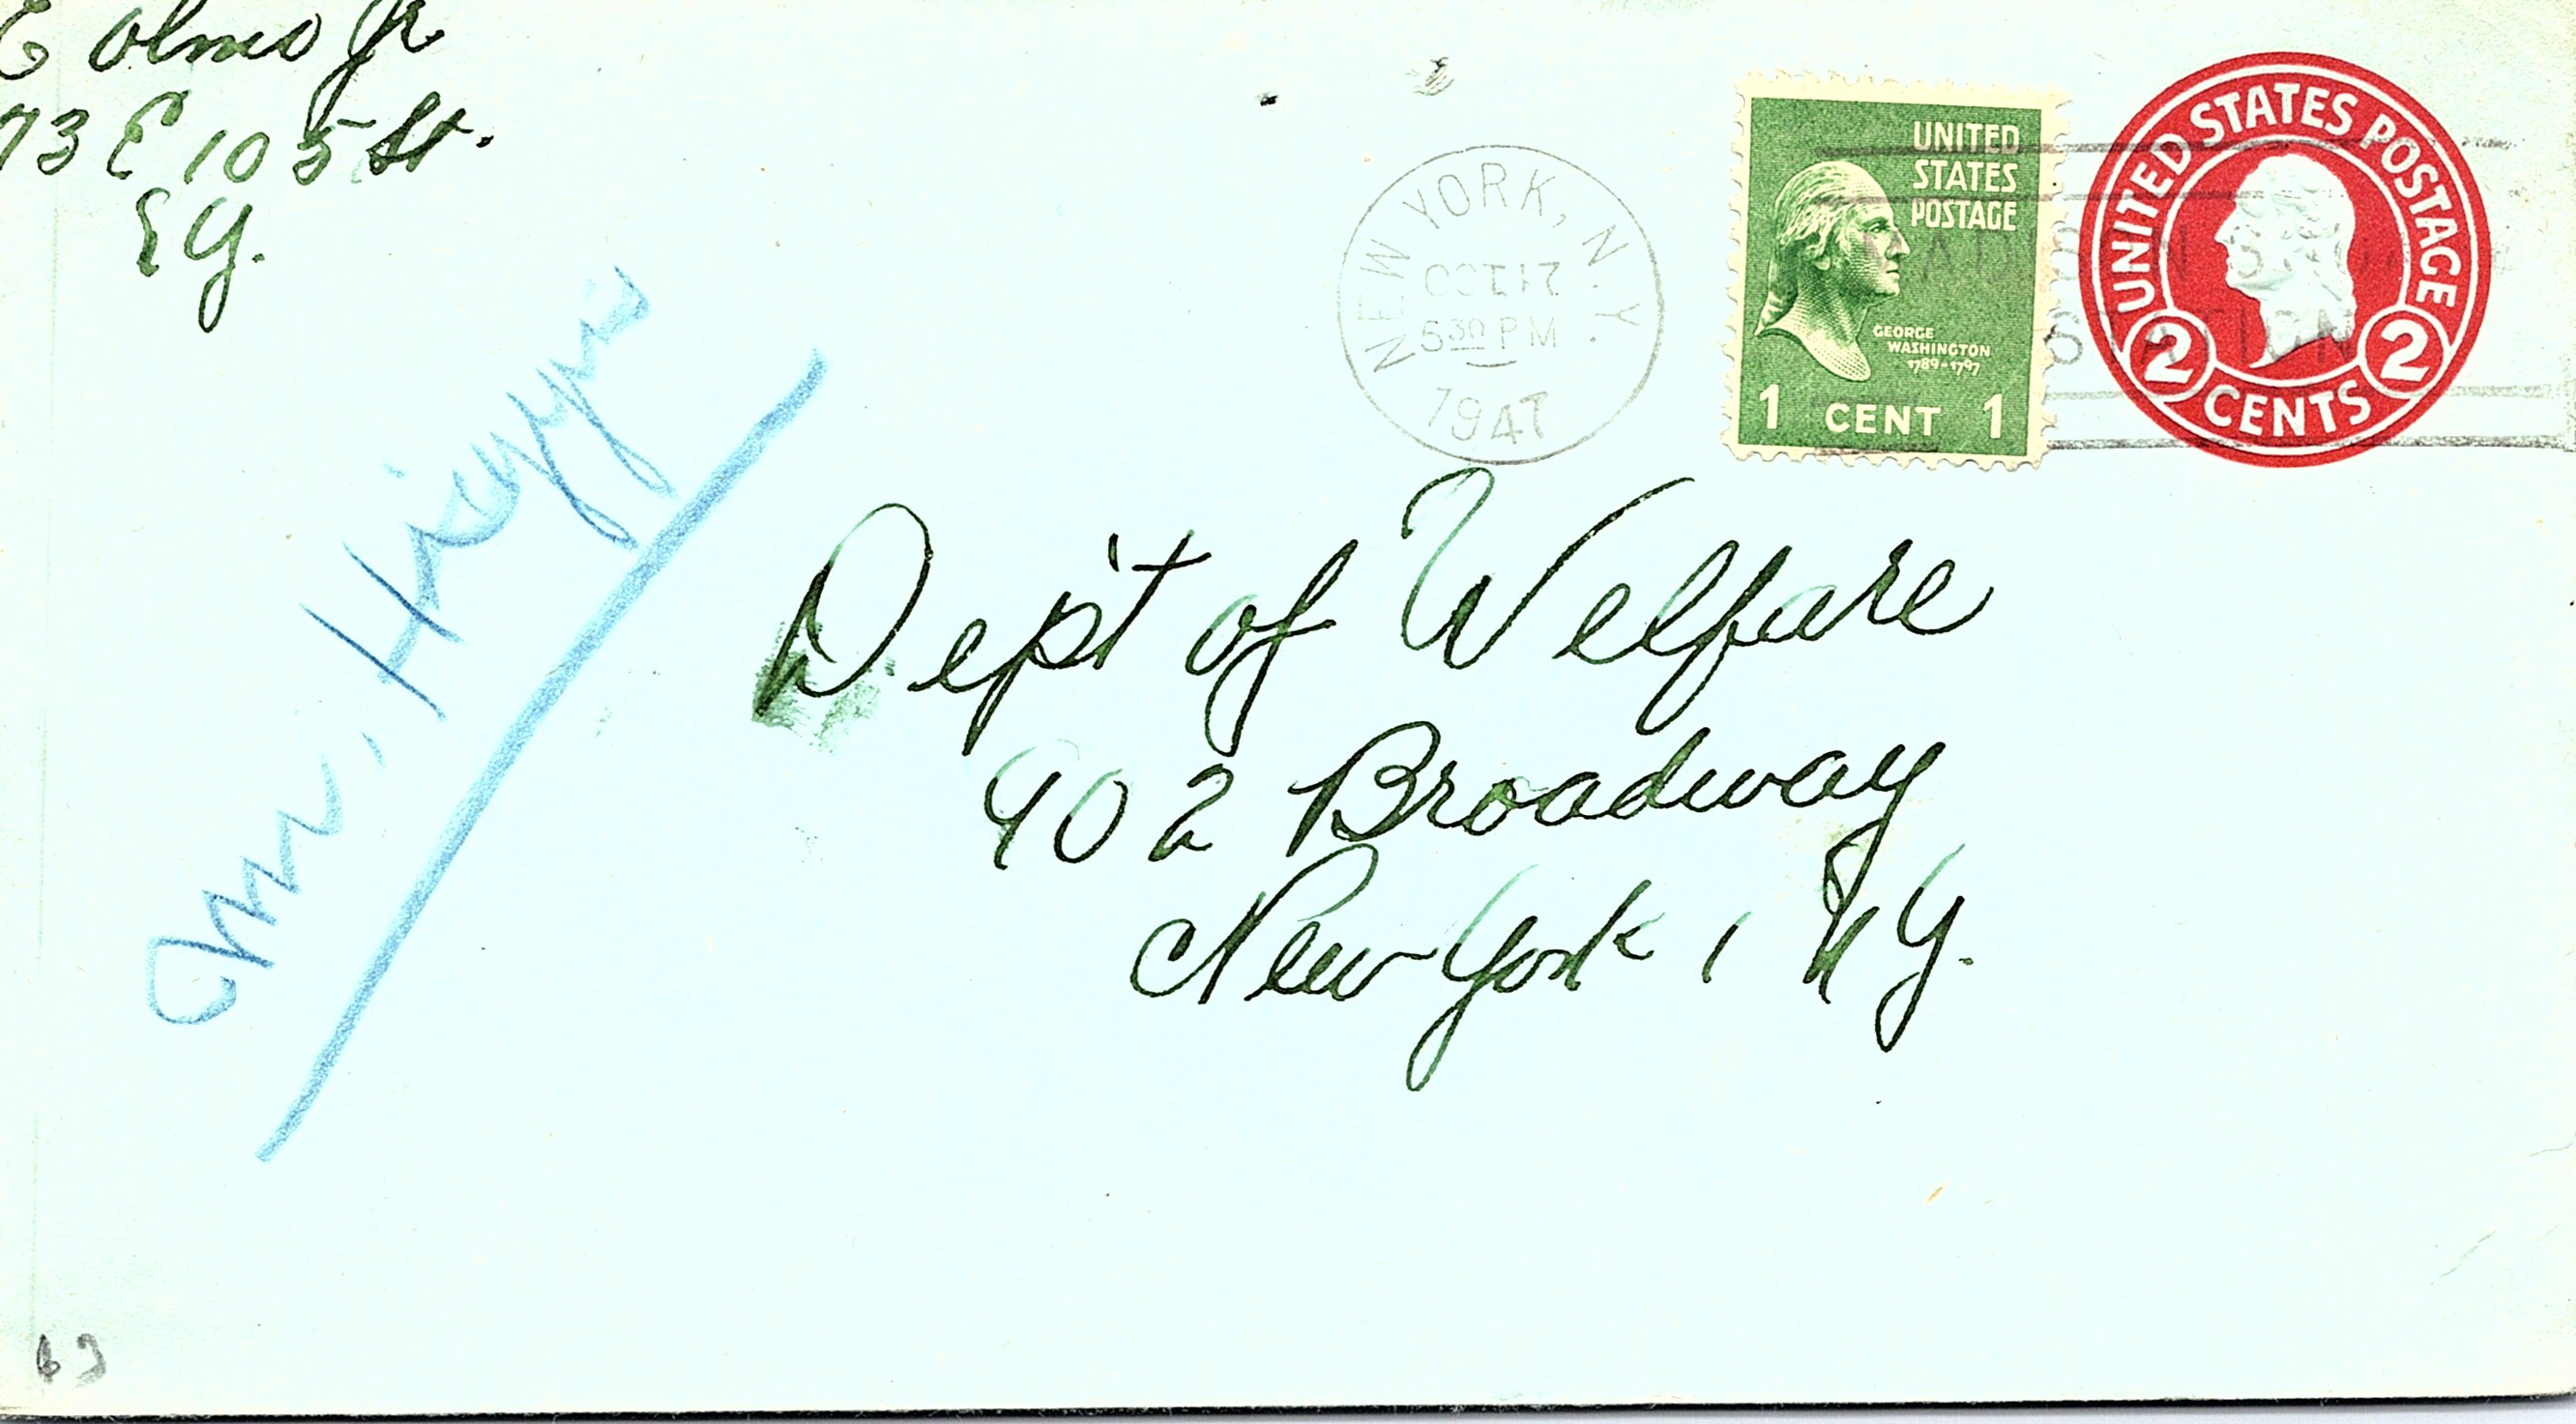 E Olmo Jr
73 E 105 St.
NY.
Mr. Higgins
NEW YORK, N.Y.
OCT 17
5 30 PM
1947
UNITED
STATES
POSTAGE
GEORGE
WASHINGTON
1789-1797
1 CENT 1
UNITED STATES POSTAGE
2 CENTS 2
STATION
Dep't of Welfare
902 Broadway
New York 1 NY.
63